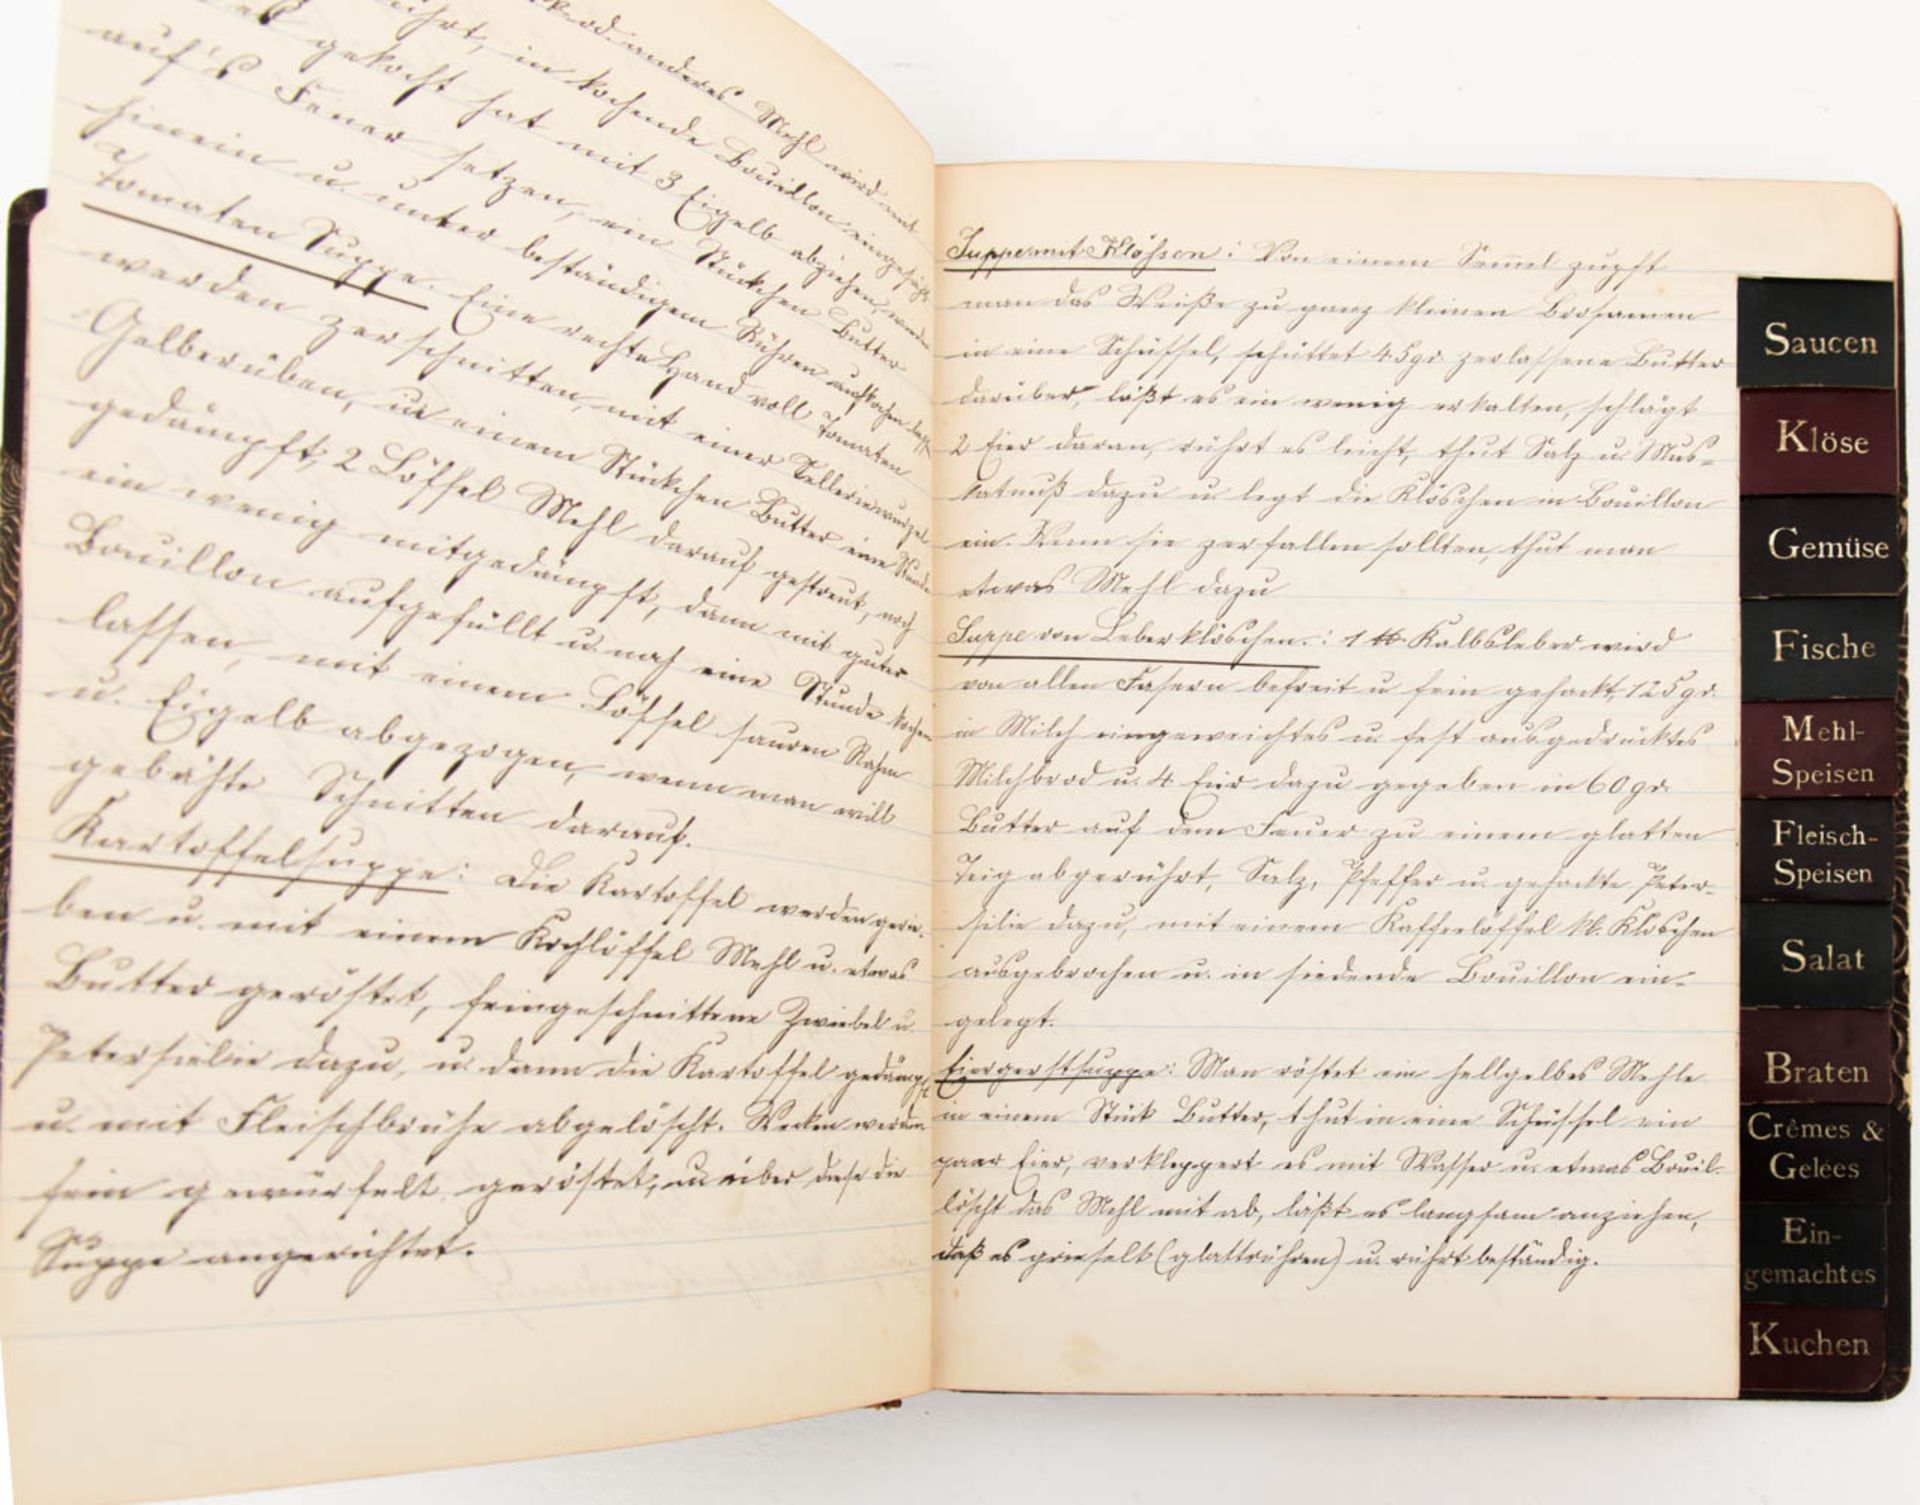 anderes Mehl wird mit
in kochende Bouillon eingerührt
gekocht hat mit 3 Eigelb abziehen, wieder
auf's Feuer setzen, ein Stückchen Butter
hinein u. unter beständigem Rühren aufkochen
Tomaten Suppe. Eine rechte Hand voll Tomaten
werden zerschnitten, mit einer Selleriewurzel
Gelberüben, in einem Stückchen Butter eine Stunde
gedämpft, 2 Löffel Mehl darauf gestreut, noch
ein wenig mitgedämpft, dann mit guter
Bouillon aufgefüllt u. noch eine Stunde kochen
lassen, mit einem Löffel sauren Rahm
u. Eigelb abgezogen, wenn man will
gebähte Schnitten darauf.
Kartoffelsuppe: Die Kartoffel werden gerie-
ben u. mit einem Kochlöffel Mehl u. etwas
Butter geröstet, feingeschnittene Zwiebel u.
Petersielie dazu, u. dann die Kartoffel gedämpft
u. mit Fleischbrühe abgelöscht. Wecken werden
fein gewürfelt geröstet, u. über diese die
Suppe angerichtet.
Suppe mit Klößsen: Von einem Semel zupft
man das Weiße zu ganz kleinen Brosamen
in eine Schüssel, schüttet 45 gr. zerlassene Butter
darüber, läßt es ein wenig erkalten, schlägt
2 Eier daran, rührt es leicht, thut Salz u. Mus-
katnuß dazu u. legt die Klöschen in Bouillon
ein. Wenn sie zerfallen sollten, thut man
etwas Mehl dazu
Suppe von Leberklöschen.: 1 ℔ Kalbsleber wird
von allen Fasern befreit u fein gehackt, 125 gr.
in Milch eingeweichtes u. fest ausgedrücktes
Milchbrod u. 4 Eier dazu gegeben in 60 gr.
Butter auf dem Feuer zu einem glatten
Teig abgerührt, Salz, Pfeffer u. gehackte Peter-
silie dazu, mit einem Kaffeelöffel kl. Klöschen
ausgebrochen u. in siedende Bouillon ein-
gelegt.
Eiergerstsuppe: Man röstet ein hellgelbes Mehle
in einem Stük Butter, thut in eine Schüssel ein
paar Eier, verkleppert es mit Wasser u. etwas Bouil.
löscht das Mehl mit ab, läßt es langsam anziehen,
daß es grieselt (glattrühren) u. rührt beständig.
Saucen
Klöse
Gemüse
Fische
Mehl-
Speisen
Fleisch-
Speisen
Salat
Braten
Crêmes &
Gelées
Ein-
gemachtes
Kuchen